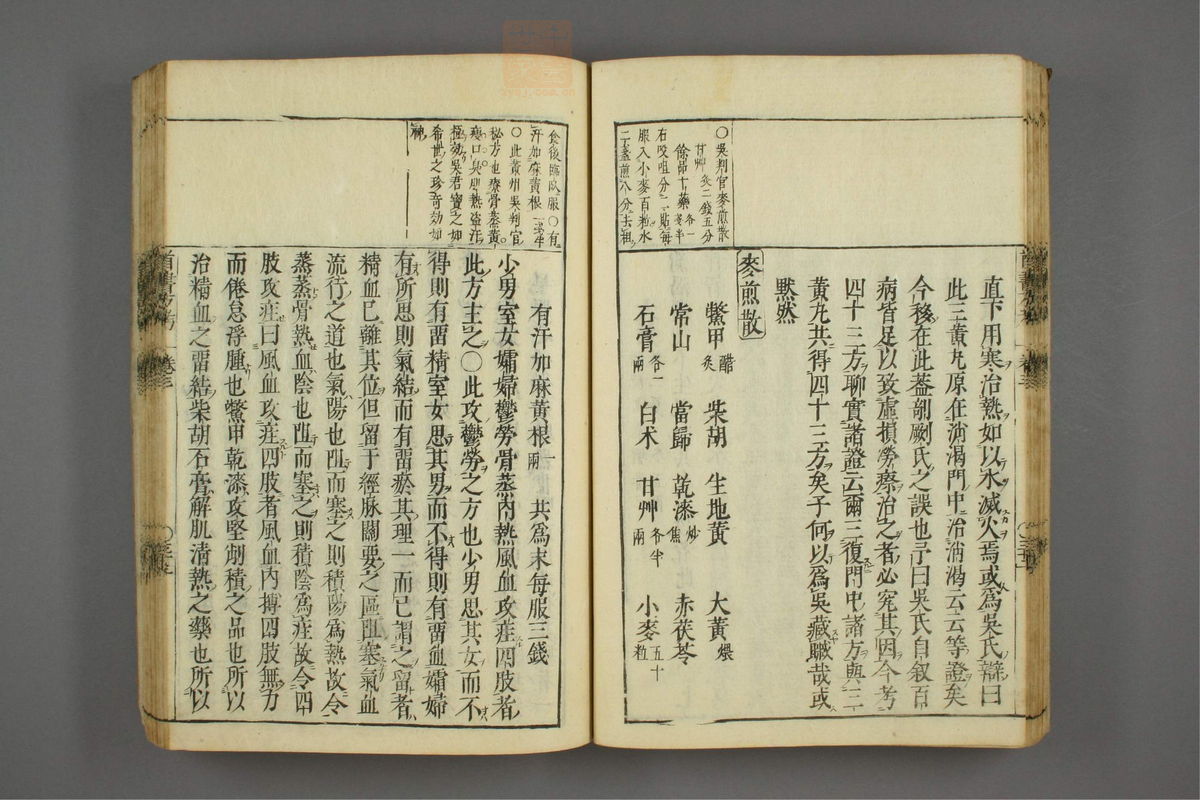 ○吳判官麥煎散
甘艸炙二錢五分
餘品十藥各一
右㕮咀分二貼每
服入小麥百粒水
二盞煎八分去柤
直下用寒治熱如以水滅火焉或爲吳氏辯曰
此三黃丸原在消渴門中治消渴云云等證矣
今移在此蓋剞劂氏之誤也予曰吳氏自叙百
病皆足以致虛損勞瘵治之者必究其因今考
四十三方聊實諸證云爾三復門中諸方與三
黃丸共得四十三方矣子何以爲吳藏贓哉或
默然
麥煎散
鱉甲醋炙 柴胡 生地黃 大黃煨
常山 當歸 乾漆炒焦 赤茯苓
石膏各一兩 白术 甘艸各半兩 小麥五十粒
食後臨臥服○有
汗加麻黃根
○此黃州吳判官
秘方也療骨蒸黃
瘦口臭肌熱盜汗
極効吳君寶之如
希世之珍奇効如
神
有汗加麻黃根一兩 共爲末每服三錢
少男室女孀婦鬱勞骨蒸內熱風血攻疰四肢者
此方主之○此攻鬱勞之方也少男思其女而不
得則有畱精室女思其男而不得則有畱血孀婦
有所思則氣結而有畱瘀其理一而已謂之留者
精血已離其位但留于經脉關要之區阻塞氣血
流行之道也氣陽也阻而塞之則積陽爲熱故令
蒸蒸骨熱血陰也阻而塞之則積陰爲疰故令四
肢攻疰曰風血攻疰四肢者風血內搏四肢無力
而倦怠浮腫也鱉甲乾漆攻堅削積之品也所以
治精血之畱結柴胡石膏解肌清熱之藥也所以